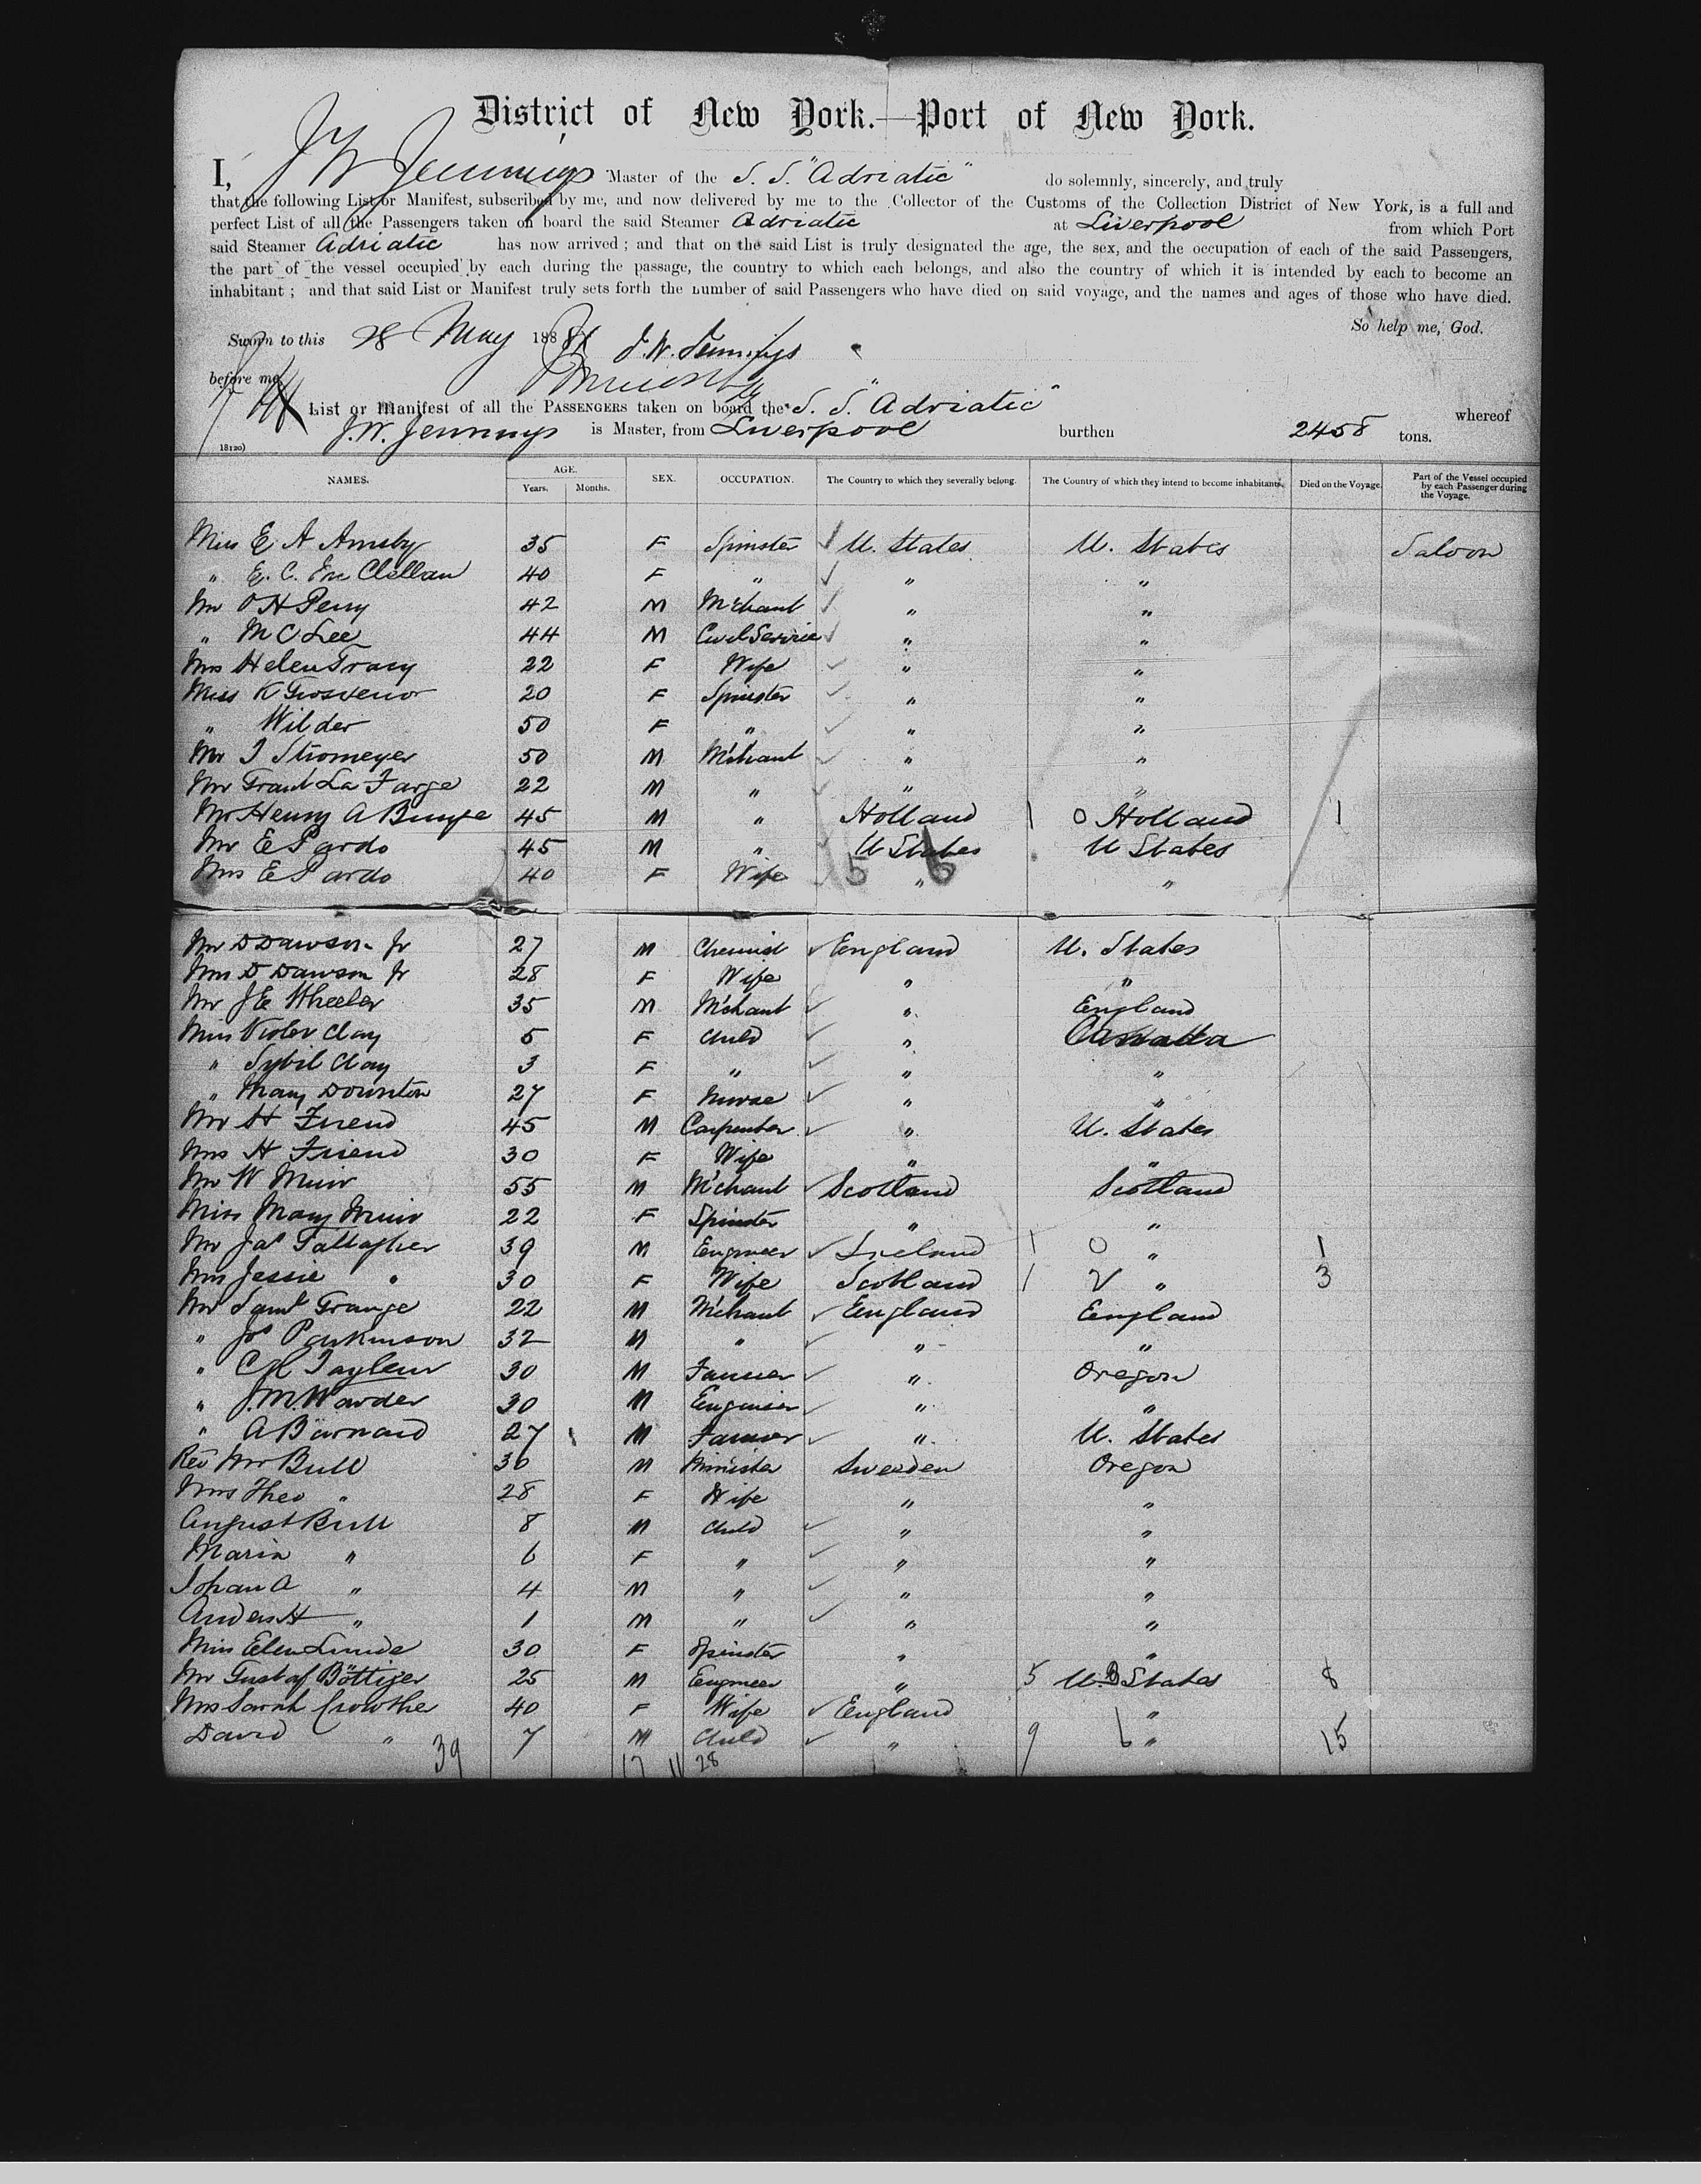 District of New York.—Port of New York.
I, J W Jennings Master of the S. S. "Adriatic" do solemnly, sincerely, and truly
that the following List or Manifest, subscribed by me, and now delivered by me to the Collector of the Customs of the Collection District of New York, is a full and
perfect List of all the Passengers taken on board the said Steamer Adriatic at Liverpool from which Port
said Steamer Adriatic has now arrived; and that on the said List is truly designated the age, the sex, and the occupation of each of the said Passengers,
the part of the vessel occupied by each during the passage, the country to which each belongs, and also the country of which it is intended by each to become an
inhabitant; and that said List or Manifest truly sets forth the number of said Passengers who have died on said voyage, and the names and ages of those who have died.
So help me, God.
Sworn to this 28 May 188 J. W. Jennings
before me
List or Manifest of all the PASSENGERS taken on board the S. S. "Adriatic" whereof
J. W. Jennings is Master, from Liverpool burthen 2458 tons.
18120)
NAMES. AGE. Years. Months. SEX. OCCUPATION. The Country to which they severally belong. The Country of which they intend to become inhabitants. Died on the Voyage. Part of the Vessel occupied by each Passenger during the Voyage.
Miss E A Amsby 35 F Spinster U. States U. States Saloon
" E. C. Clellan 40 F " " "
Mr O H Perry 42 M Mchant " "
" M C Lee 44 M Civil Service " "
Mrs Helen Tracy 22 F Wife " "
Miss K Grosvenor 20 F Spinster " "
" Wilder 50 F " " "
Mr J Stromeyer 50 M Mchant " "
Mr Grant La Farge 22 M " " "
Mr Henry A Bunge 45 M " Holland 1 0 Holland 1
Mr E Pardo 45 M " U States U States
Mrs E Pardo 40 F Wife 5 " 6 "
Mr D Dawson Jr 27 M Chemist England U. States
Mrs D Dawson Jr 28 F Wife " "
Mr J E Wheeler 35 M Mchant " England
Miss Violet Clay 5 F Child " Canada
" Sybil Clay 3 F " " "
" Mary Downton 27 F Nurse " "
Mr H Friend 45 M Carpenter " U. States
Mrs H Friend 30 F Wife " "
Mr W Muir 55 M Mchant Scotland Scotland
Miss Mary Muir 22 F Spinster " "
Mr Jas Gallagher 39 M Engineer Ireland 1 0 " 1
Mrs Jessie " 30 F Wife Scotland 1 2 " 3
Mr Saml Grange 22 M Mchant England England
" Jos Parkinson 32 M " " "
" C H Tayleur 30 M Farmer " Oregon
" J. M. Warder 30 M Engineer " "
" A Barnard 27 M Farmer " U. States
Rev Mr Bull 36 M Minister Sweden Oregon
Mrs Theo " 28 F Wife " "
August Bull 8 M Child " "
Maria " 6 F " " "
Johan A " 4 M " " "
Anders H " 1 M " " "
Miss Elen Lunde 30 F Spinster " "
Mr Gustaf Böttiger 25 M Engineer " 5 U. States 8
Mrs Sarah Crowther 40 F Wife England "
David " 7 M Child " 9 6 " 15
39 17 11 28